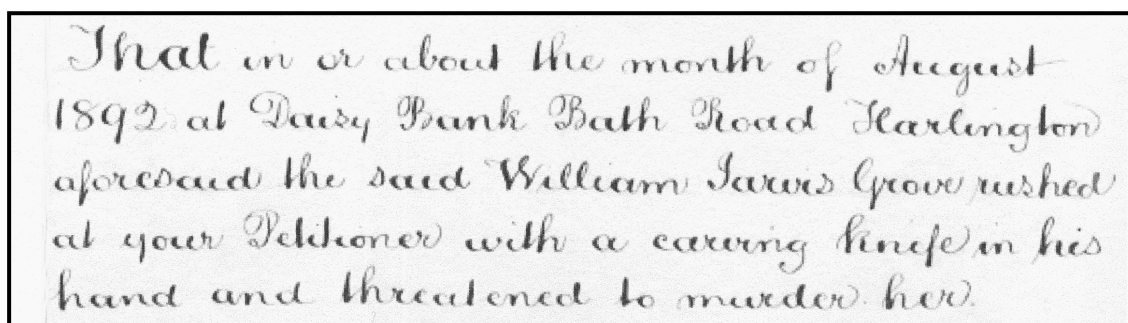 That in or about the month of August
1892 at Daisy Bank Bath Road Harlington
aforesaid the said William Jarvis Grove rushed
at your Petitioner with a carving knife in his
hand and threatened to murder her.